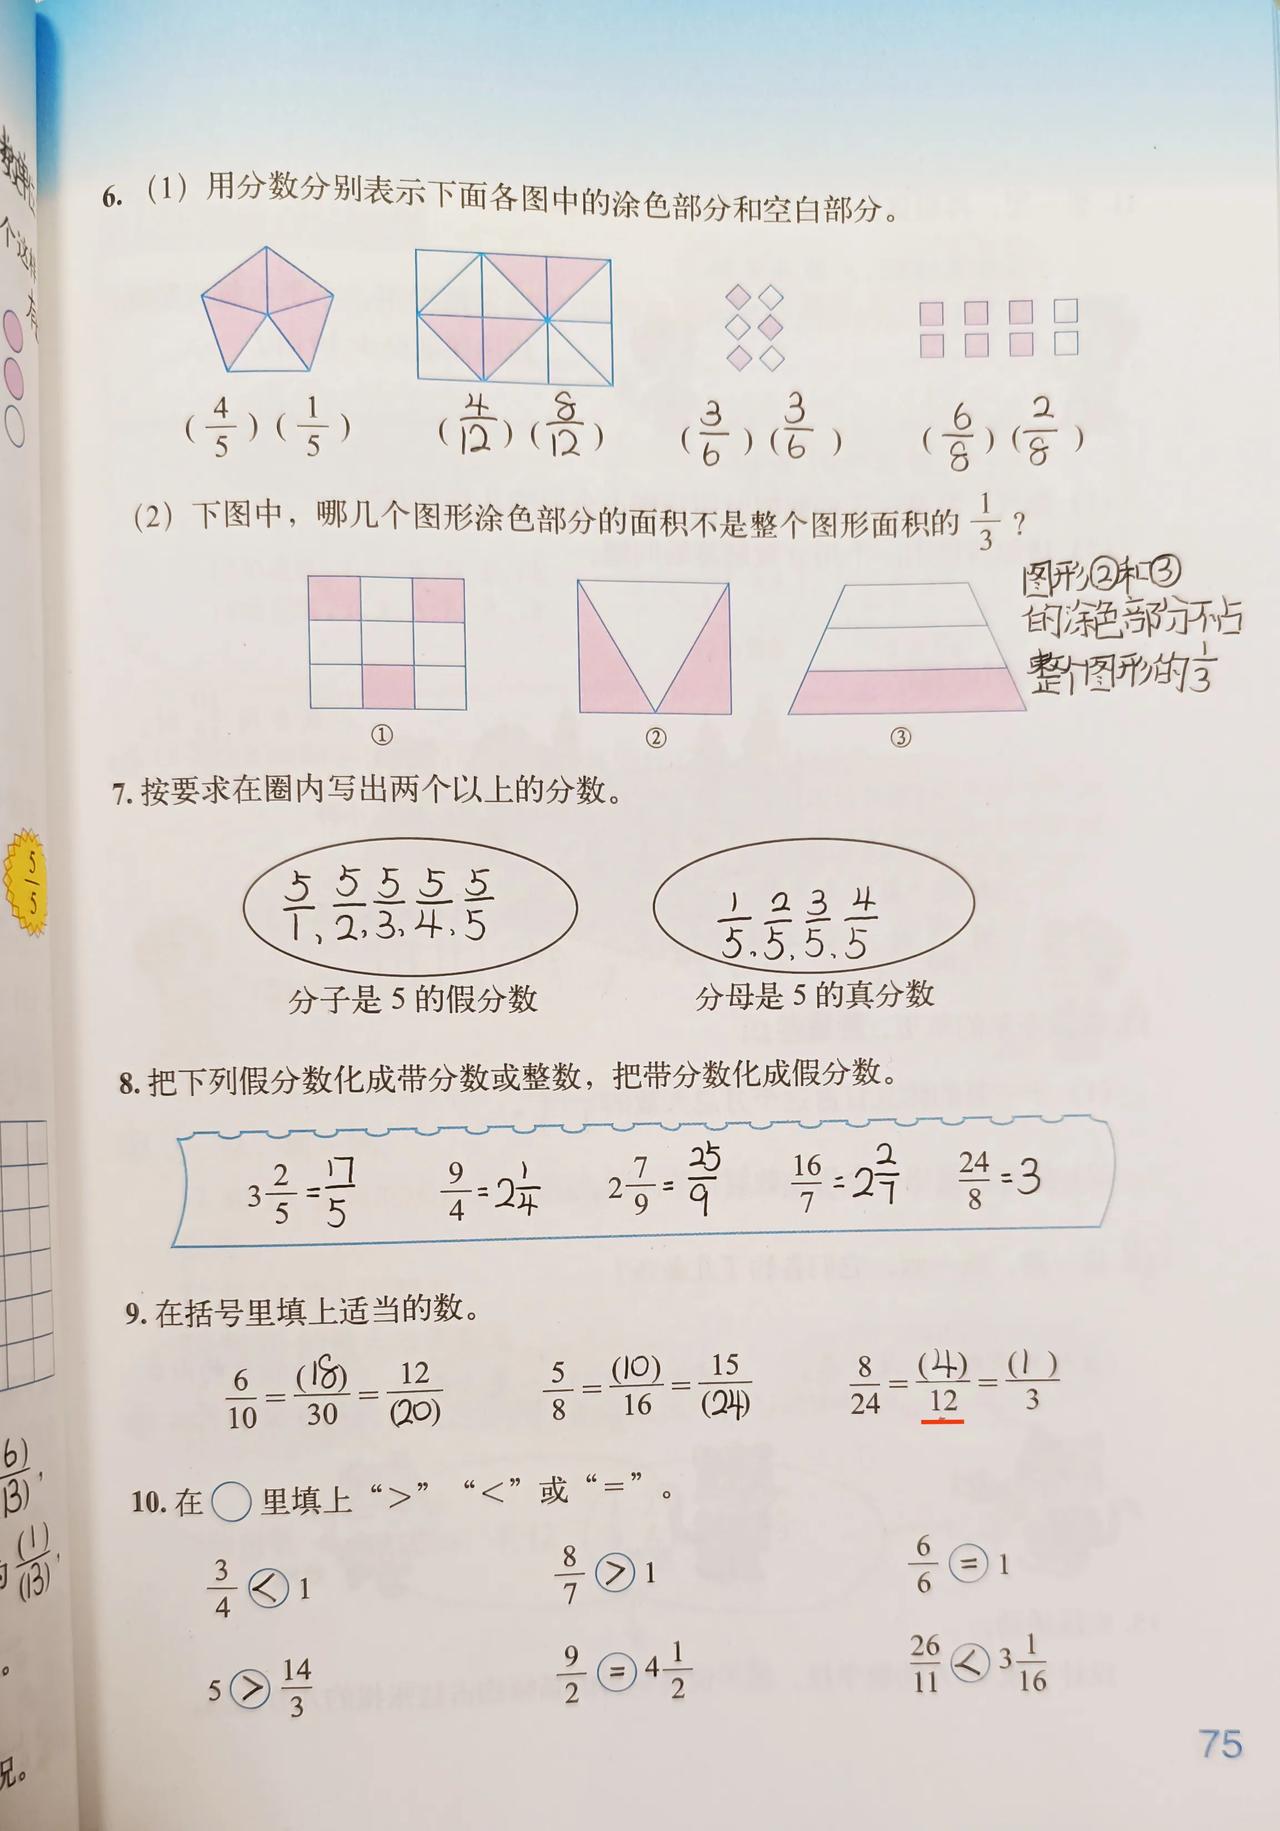 6. (1) 用分数分别表示下面各图中的涂色部分和空白部分。
(4/5) (1/5) (4/12) (8/12) (3/6) (3/6) (6/8) (2/8)
(2) 下图中，哪几个图形涂色部分的面积不是整个图形面积的 1/3？
图形②和③
的涂色部分不占
整个图形的1/3
① ② ③
7. 按要求在圈内写出两个以上的分数。
5/1、5/2、5/3、5/4、5/5
1/5、2/5、3/5、4/5
分子是 5 的假分数 分母是 5 的真分数
8. 把下列假分数化成带分数或整数，把带分数化成假分数。
3 2/5 = 17/5 9/4 = 2 1/4 2 7/9 = 25/9 16/7 = 2 2/7 24/8 = 3
9. 在括号里填上适当的数。
6/10 = (18)/30 = 12/(20) 5/8 = (10)/16 = 15/(24) 8/24 = (4)/12 = (1)/3
10. 在○里填上“>”“<”或“=”。
3/4 < 1 8/7 > 1 6/6 = 1
5 > 14/3 9/2 = 4 1/2 26/11 < 3 1/16
75
个这样
5/5
6)
13)，
(1)/(13)，
况。